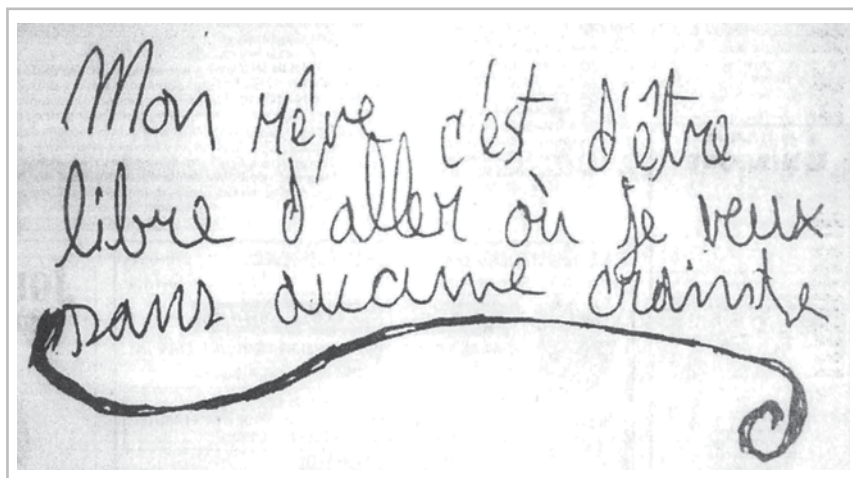 Mon rêve c'est d'être
libre d'aller où je veux
sans aucune crainte